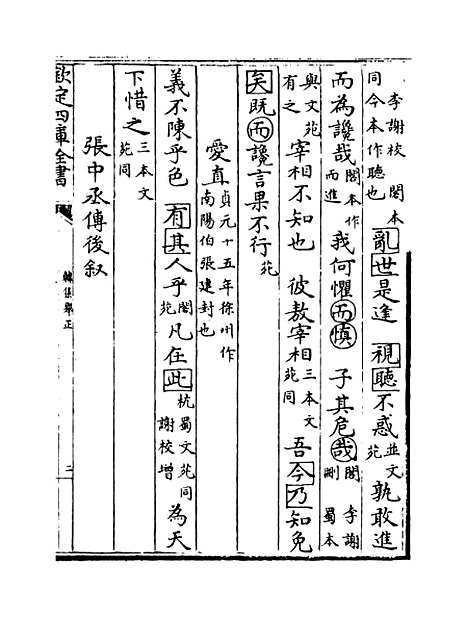 李謝校 閣本同今本作聽也 亂世是逢 視聽不惑 並文苑 孰敢進
而為讒哉 閣本作而進 我何懼而慎 子其危哉 閣 李謝刪 蜀本
與文苑有之 宰相不知也 彼敖宰相 三本文苑同 吾今乃知免
矣既而讒言果不行 苑
愛直 貞元十五年徐州作南陽伯張建封也
義不陳乎色 有其人乎 閣苑 凡在此 杭蜀文苑同謝校增 為天
下惜之 三本文苑同
張中丞傳後叙
欽定四庫全書
韓集舉正
二